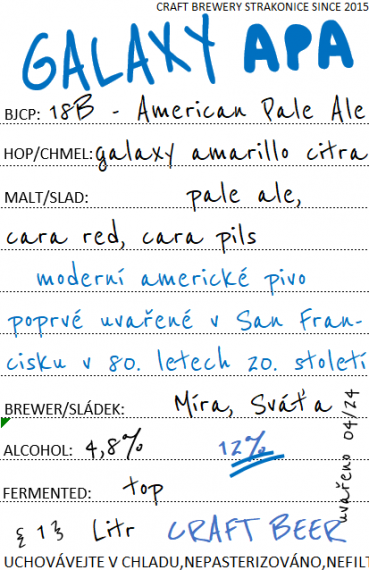 CRAFT BREWERY STRAKONICE SINCE 2015
GALAXY APA
BJCP: 18B - American Pale Ale
HOP/CHMEL: galaxy amarillo citra
MALT/SLAD: pale ale,
cara red, cara pils
moderní americké pivo
poprvé uvařené v San Fran-
cisku v 80. letech 20. století
BREWER/SLÁDEK: Míra, Sváťa
ALCOHOL: 4,8% 12%
FERMENTED: top
uvařeno 04/24
Litr CRAFT BEER
UCHOVÁVEJTE V CHLADU,NEPASTERIZOVÁNO,NEFILT